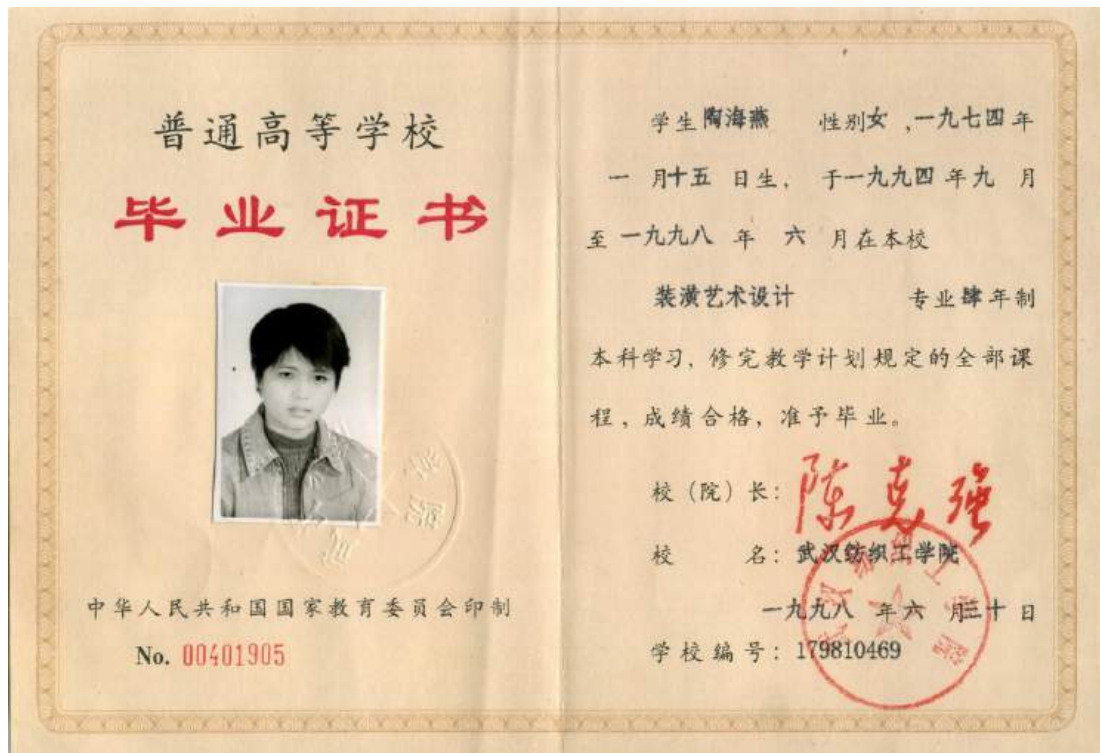 普通高等学校
毕业证书
中华人民共和国国家教育委员会印制
No. 00401905
学生陶海燕 性别女,一九七四年
一月十五日生, 于一九九四年九月
至一九九八年六月在本校
装潢艺术设计 专业肆年制
本科学习, 修完教学计划规定的全部课
程, 成绩合格, 准予毕业。
校(院)长: 陈克强
校名: 武汉纺织工学院
一九九八年六月三十日
学校编号: 179810469
武汉纺织工学院